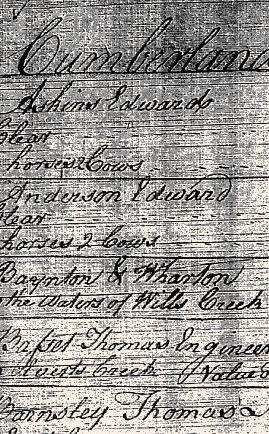 Cumberland
Askins Edward
Clear
horses 2 Cows
Anderson Edward
Clear
horses 2 Cows
Baynton & Wharton
the Waters of Wills Creek
Thomas Engineer
Creek Value
Barnsley Thomas